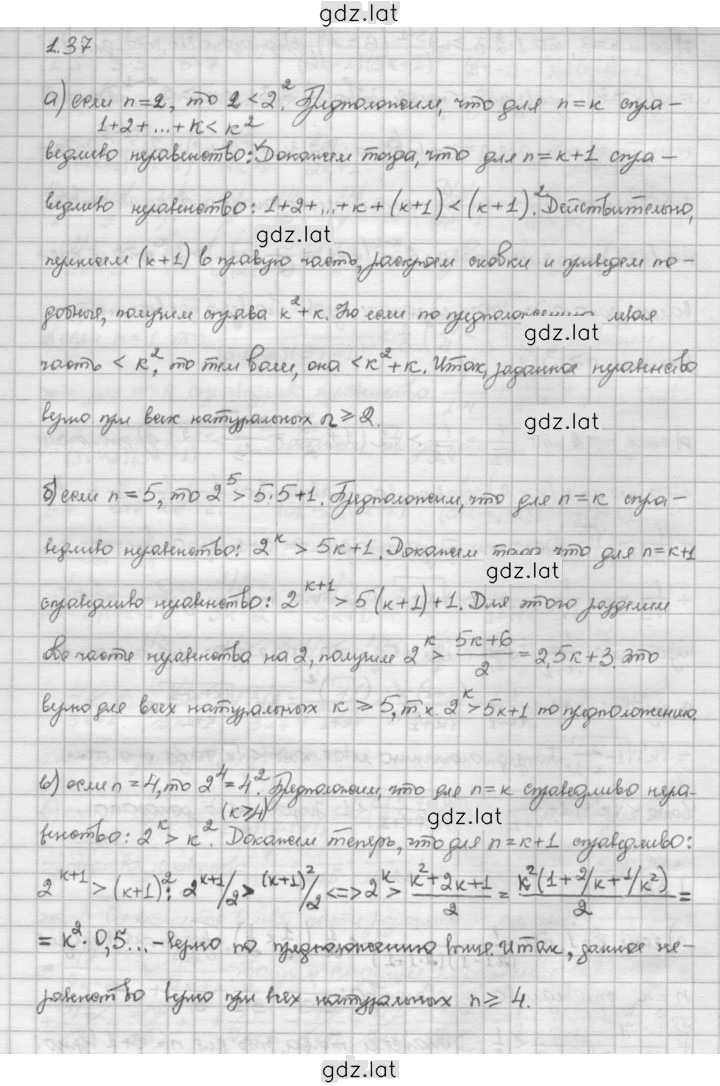 gdz.lat
1.37
а) если n=2, то 2<2². Предположим, что для n=к спра-
1+2+...+к<к²
ведливо неравенство: Докажем тогда, что для n=к+1 спра-
ведливо неравенство: 1+2+...+к+(к+1)<(к+1)². Действительно,
gdz.lat
перенесем (к+1) в правую часть, раскроем скобки и приведем по-
добные, получим справа к²+к. Но если по предположению левая
gdz.lat
часть < к², то тем более, она <к²+к. Итак, заданное неравенство
верно при всех натуральных n⩾2.
gdz.lat
б) если n=5, то 2⁵>5·5+1. Предположим, что для n=к спра-
ведливо неравенство: 2ᵏ>5к+1. Докажем что для n=к+1
gdz.lat
справедливо неравенство: 2ᵏ⁺¹>5(к+1)+1. Для этого разделим
обе части неравенства на 2, получим 2ᵏ>(5к+6)/2=2,5к+3. это
верно для всех натуральных к⩾5, т.к. 2ᵏ>5к+1 по предположению.
в) если n=4, то 2⁴=4². Предположим, что для n=к справедливо нера-
(к⩾4)
gdz.lat
венство: 2ᵏ>к². Докажем теперь, что для n=к+1 справедливо:
2ᵏ⁺¹>(к+1)²: 2ᵏ⁺¹/2>(к+1)²/2<=>2ᵏ>(к²+2к+1)/2=к²(1+2/к+1/к²)/2=
=к²·0,5...-верно по предположению выше. Итак, данное не-
gdz.lat
равенство верно при всех натуральных n⩾4.
gdz.lat